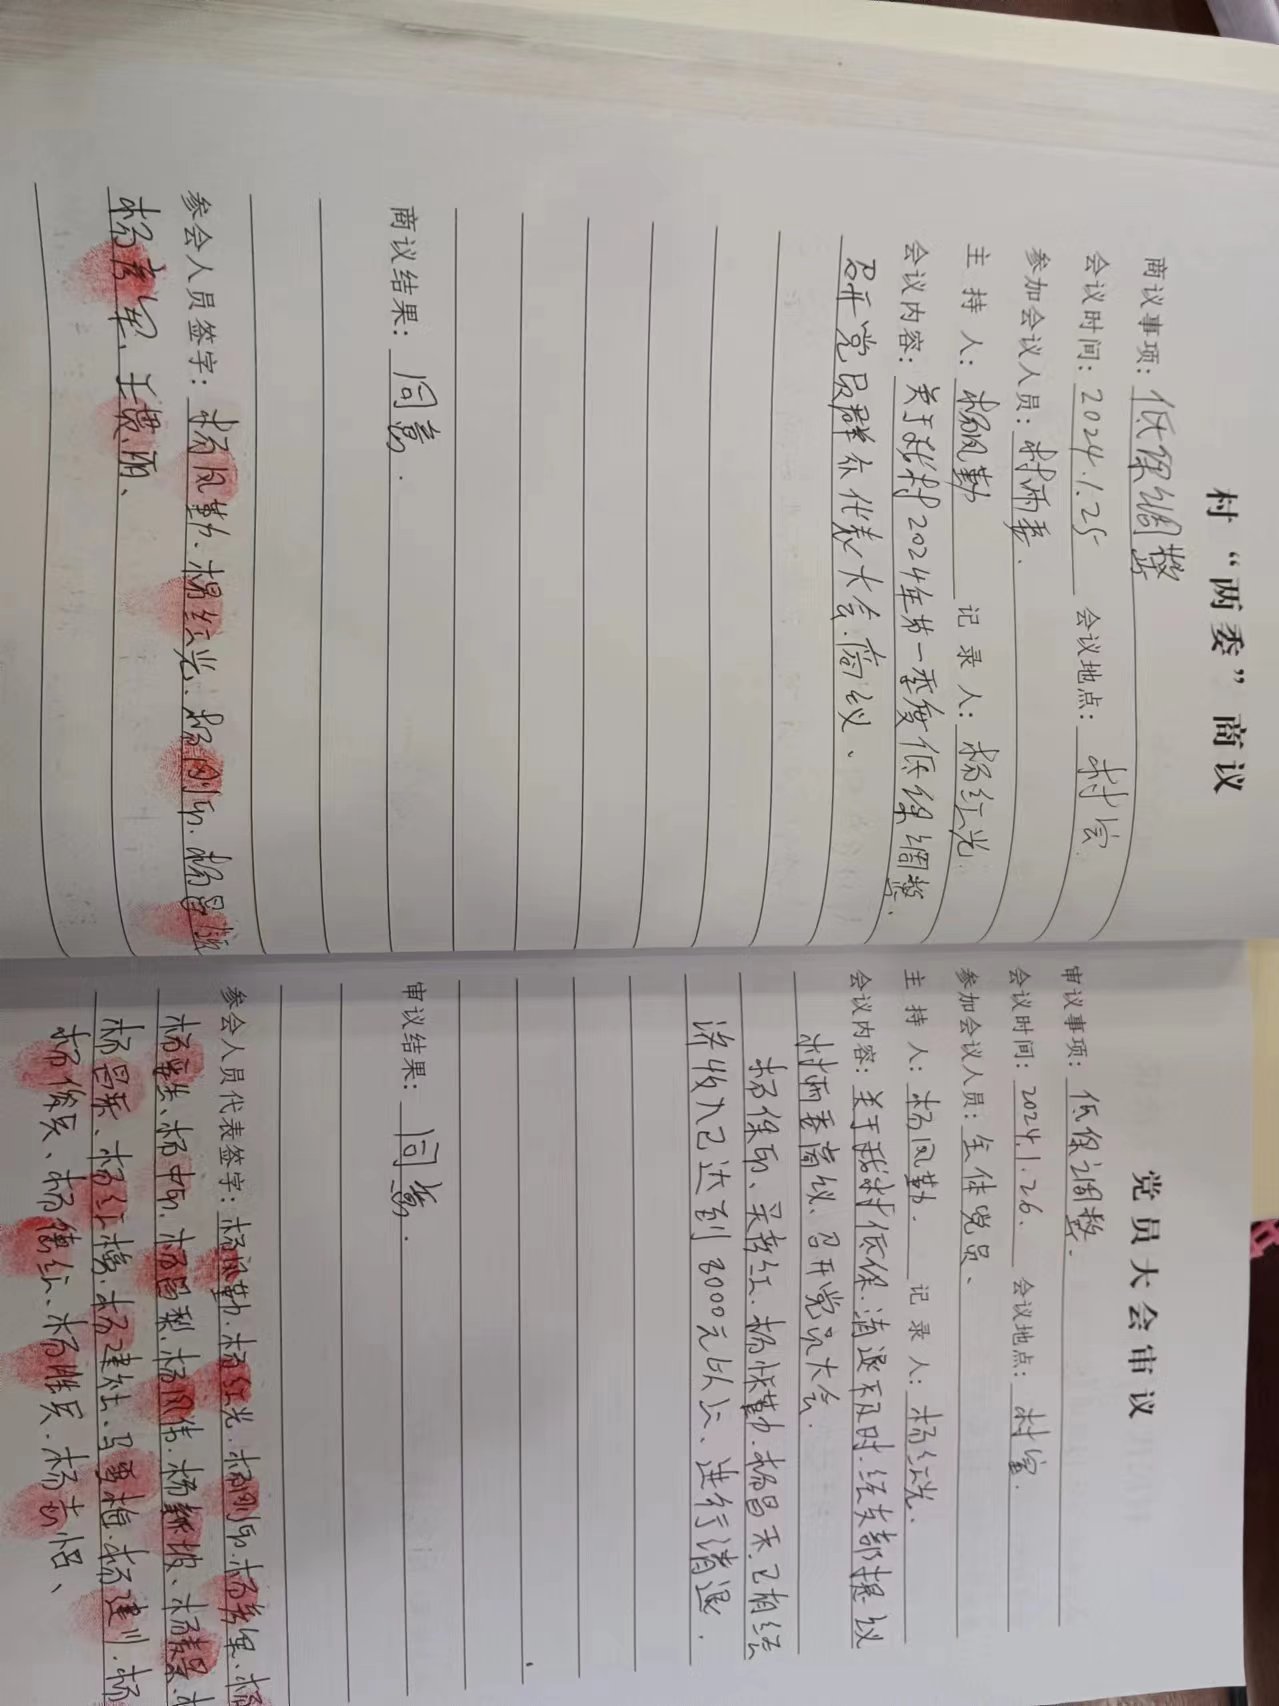 村“两委”商议
商议事项：低保调整
会议时间：2024.1.25 会议地点：村室
参加会议人员：村两委.
主 持 人：杨凤勤 记 录 人：杨红光
会议内容：关于我村2024年第一季度低保调整.
召开党员群众代表大会.商议、
商议结果：同意.
参会人员签字：杨凤勤.杨红光.杨刚印.杨
杨彦军、王
党员大会审议
审议事项：低保调整.
会议时间：2024.1.26. 会议地点：村室.
参加会议人员：全体党员、
主 持 人：杨凤勤. 记 录 人：杨红光.
会议内容：关于我村低保.清退不及时.经支部提议
村两委商议.召开党员大会.
杨保印、杨昌禾.已有经
济收入已达到8000元以上、进行清退.
审议结果：同意.
参会人员代表签字：杨凤勤.杨红光.杨刚印.杨彦军.杨
杨昌梨.杨凤伟.
杨红梅.杨建社、马雪梅.杨建川.杨
杨俊兵、杨德红、杨胜兵.杨